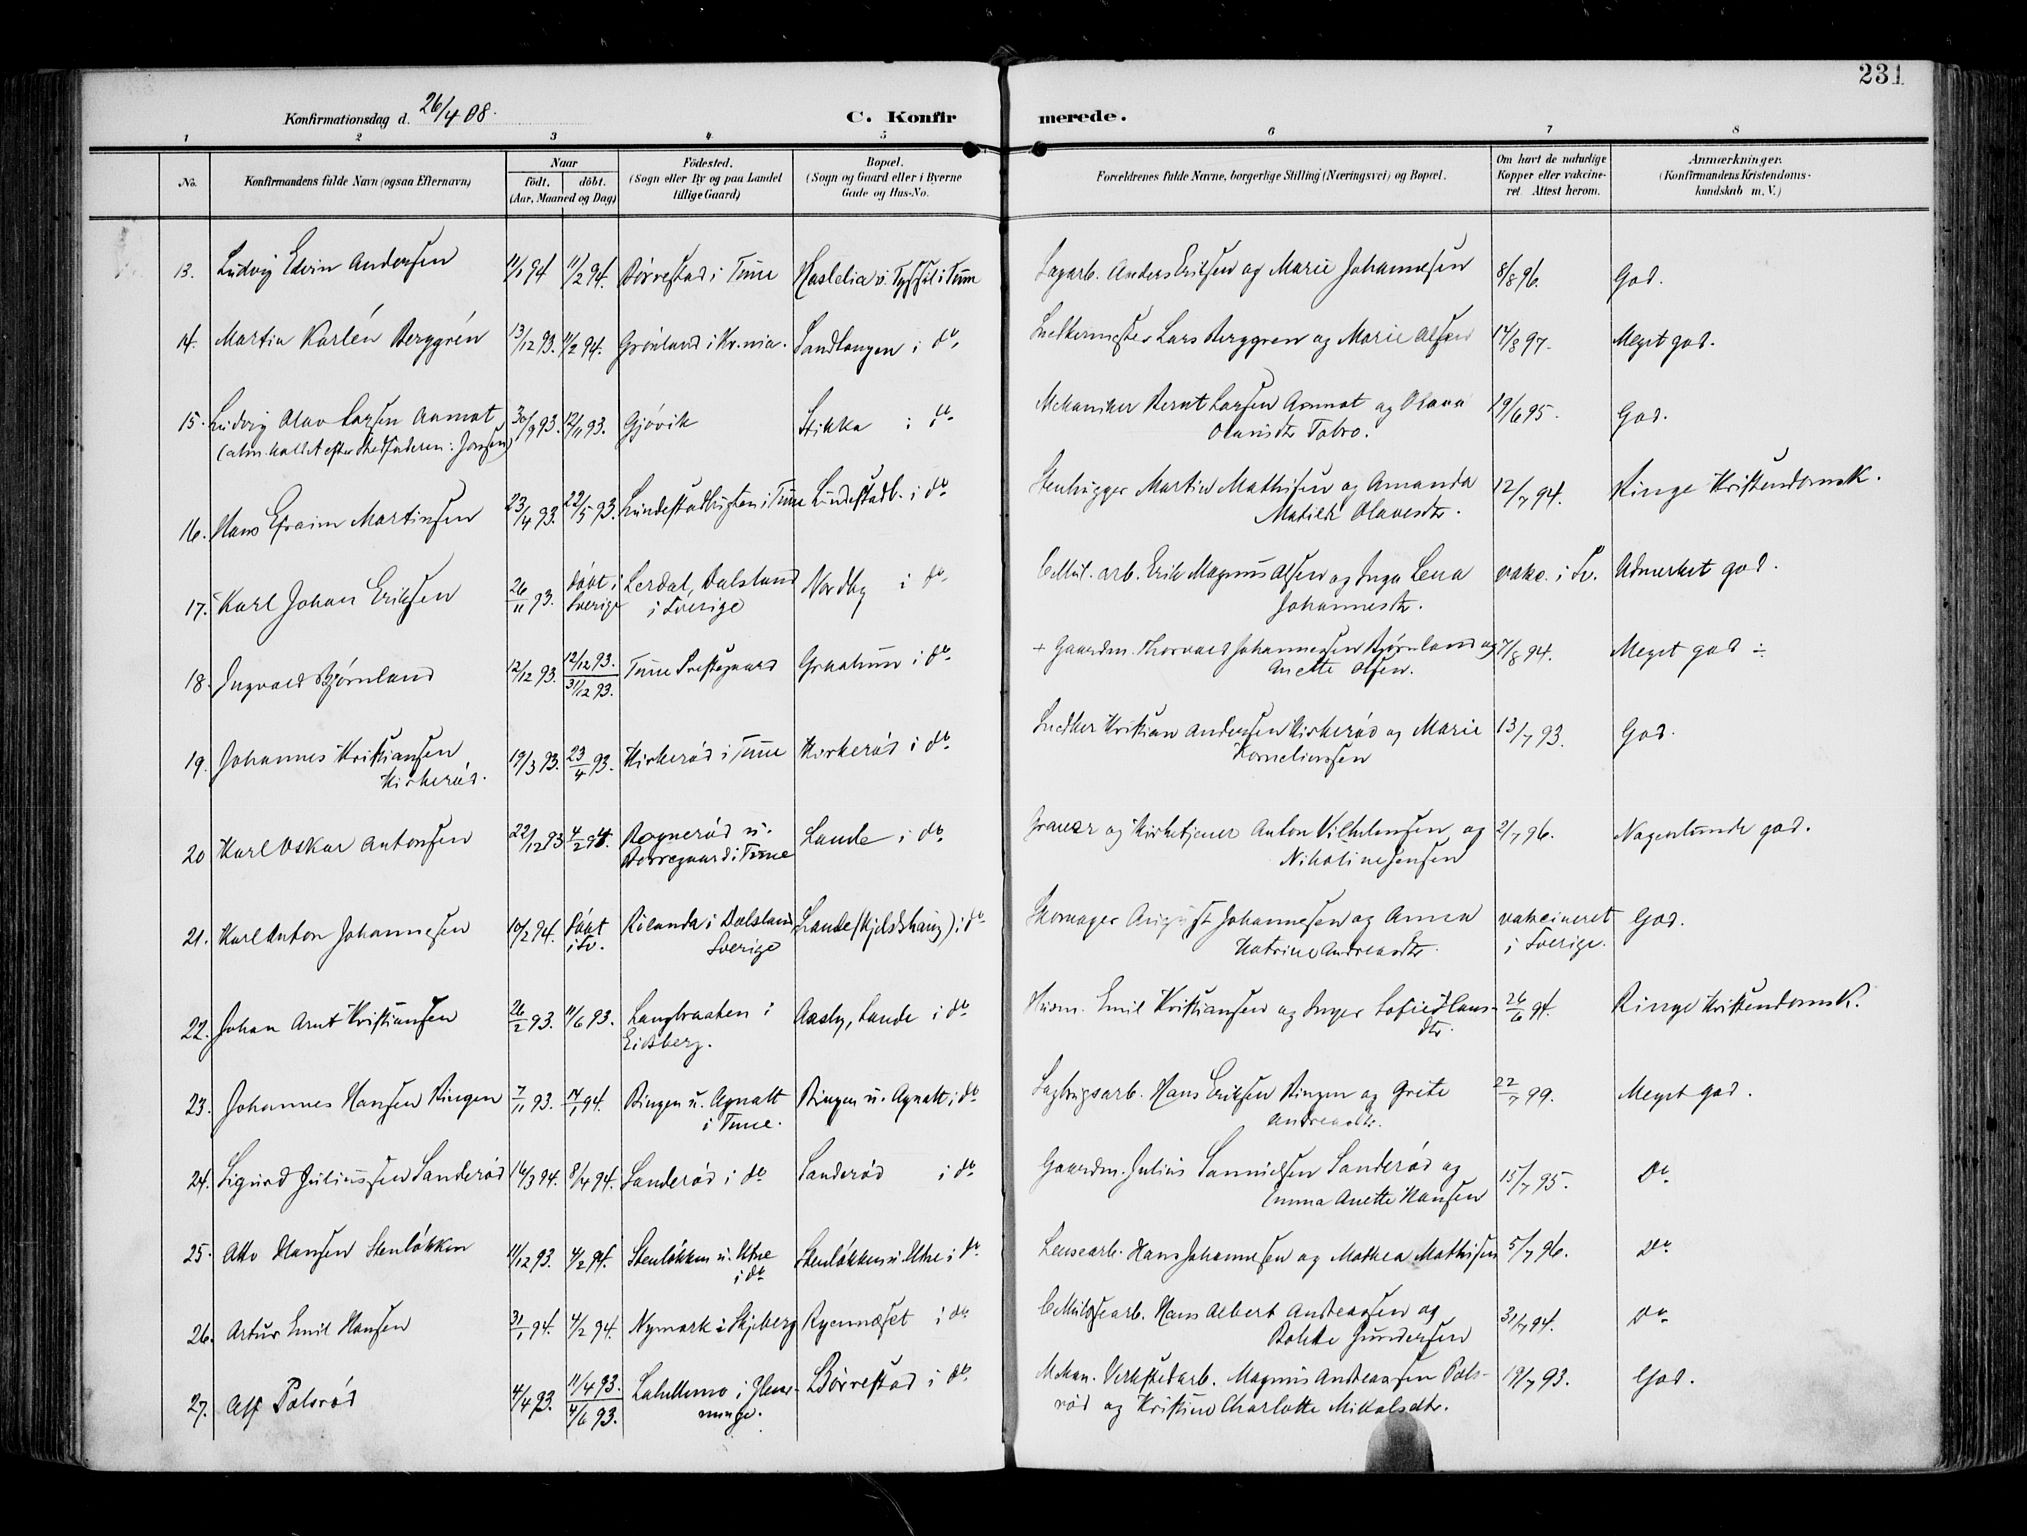 231
Konfirmationsdag d. 26/4 08.
C. Konfirmerede.
1 2 3 4 5 6 7 8
No. Konfirmandens fulde Navn (ogsaa Efternavn) Naar födt. döbt. (Aar, Maaned og Dag) Födested. (Sogn eller By og paa Landet tillige Gaard) Bopæl. (Sogn og Gaard eller i Byerne Gade og Hus-No. Forældrenes fulde Navne, borgerlige Stilling (Næringsvei) og Bopæl. Om havt de naturlige Kopper eller vakcineret. Attest herom. Anmærkninger. (Konfirmandens Kristendomskundskab m. V.)
13. Ludvig Edvin Andersen 11/1 94 11/2 94. Børrestad i Tune Haslelia i Tune Sagarb. Anders Eriksen og Marie Johannesen 8/8 96. God.
14. Martin Karlén Berggrén 13/12 93. 11/2 94. Grönland i Kr.nia. Sandtangen i do Snekkermester Lars Berggren og Marie Olsen 14/8 97. Meget god.
15. Ludvig Olav Larsen Aamot 30/9 93. 12/11 93. Gjövik Stikka i do Mekaniker Bernt Larsen Aamot og Olava 19/6 95. God.
(alm. kaldet efter Stedfaderen: Jansen) Olausdtr Tobro.
16. Hans Efraim Martinsen 23/4 93. 22/5 93. Lundestadhugten i Tune Lundestadb. i do Stenhugger Martin Mathisen og Amanda 12/7 94. Ringe Kristendomsk.
Matilde Olavesdtr.
17. Karl Johan Eriksen 26/11 93. Døbt i Sverige Lerdal, Dalsland i Sverige Nordby i do Cellul. arb. Erik Magnus Olsen og Inga Lena vakc. i Sv. Udmerket god.
Johannesdtr.
18. Ingvald Björnland 12/12 93. 12/12 93. 31/12 93. Tune Prestegaard Graatuun i do + Gaardm. Thorvald Johannessen Björnland og 7/8 94. Meget god ÷
Anette Olsen.
19. Johannes Kristiansen 19/3 93. 23/4 93. Kirkeröd i Tune Kirkeröd i do Snedker Kristian Andersen Kirkeröd og Marie 13/7 93. God.
Kirkeröd. Korneliussen
20 Karl Oskar Antonsen 22/12 93 4/2 94. Bognerød u. Borregaard i Tune Lande i do Graver og Kirketjener Anton Vilhelmsen og 2/7 96. Nogenlunde god.
Nikoline Jensen
21. Karl Anton Johannesen 10/2 94. Døbt i Sv. Rölanda i Dalsland Sverige Lande (Kjeldshaug) i do Skomager August Johannesen og Anna vakcineret God.
Katrine Andreasdtr. i Sverige.
22. Johan Arnt Kristiansen 26/2 93. 11/6 93. Langbraaten i Eidsberg. Aasly, Lande i do Husm. Emil Kristiansen og Inger Sofie Hans- 26/6 94. Ringe Kristendomsk.
dtr.
23. Johannes Hansen Ringen 7/11 93. 14/1 94. Ringen u. Agnalt i Tune. Ringen u. Agnalt i do Sagbrugsarb. Hans Eriksen Ringen og Grete 22/7 99. Meget god.
Andreasdtr.
24. Sigurd Juliussen Sanderöd 16/3 94. 8/4 94. Sanderöd i do Sanderöd i do Gaardm. Julius Samuelsen Sanderöd og 15/7 95. Do.
Emma Anette Hansen
25. Otto Hansen Stenlökken 11/12 93. 4/2 94. Stenlökken u. Utne i do Stenlökken u. Utne i do Lensearb. Hans Johannesen og Mathea Mathisen 5/7 96. Do
26. Artur Emil Hansen 31/1 94. 4/2 94. Nymark i Skjeberg Ryennæset i do Cellulosearb. Hans Albert Andreassen og 31/7 94. Do
Gundersen
27. Alf Polsröd 4/4 93. 11/4 93. 4/6 93. Labellmo i Glemminge. Börrestad i do Mekan. Verkstedarb. Magnus Andreassen Pols- 19/7 93. God.
röd og Kristine Charlotte Mikalsdtr.